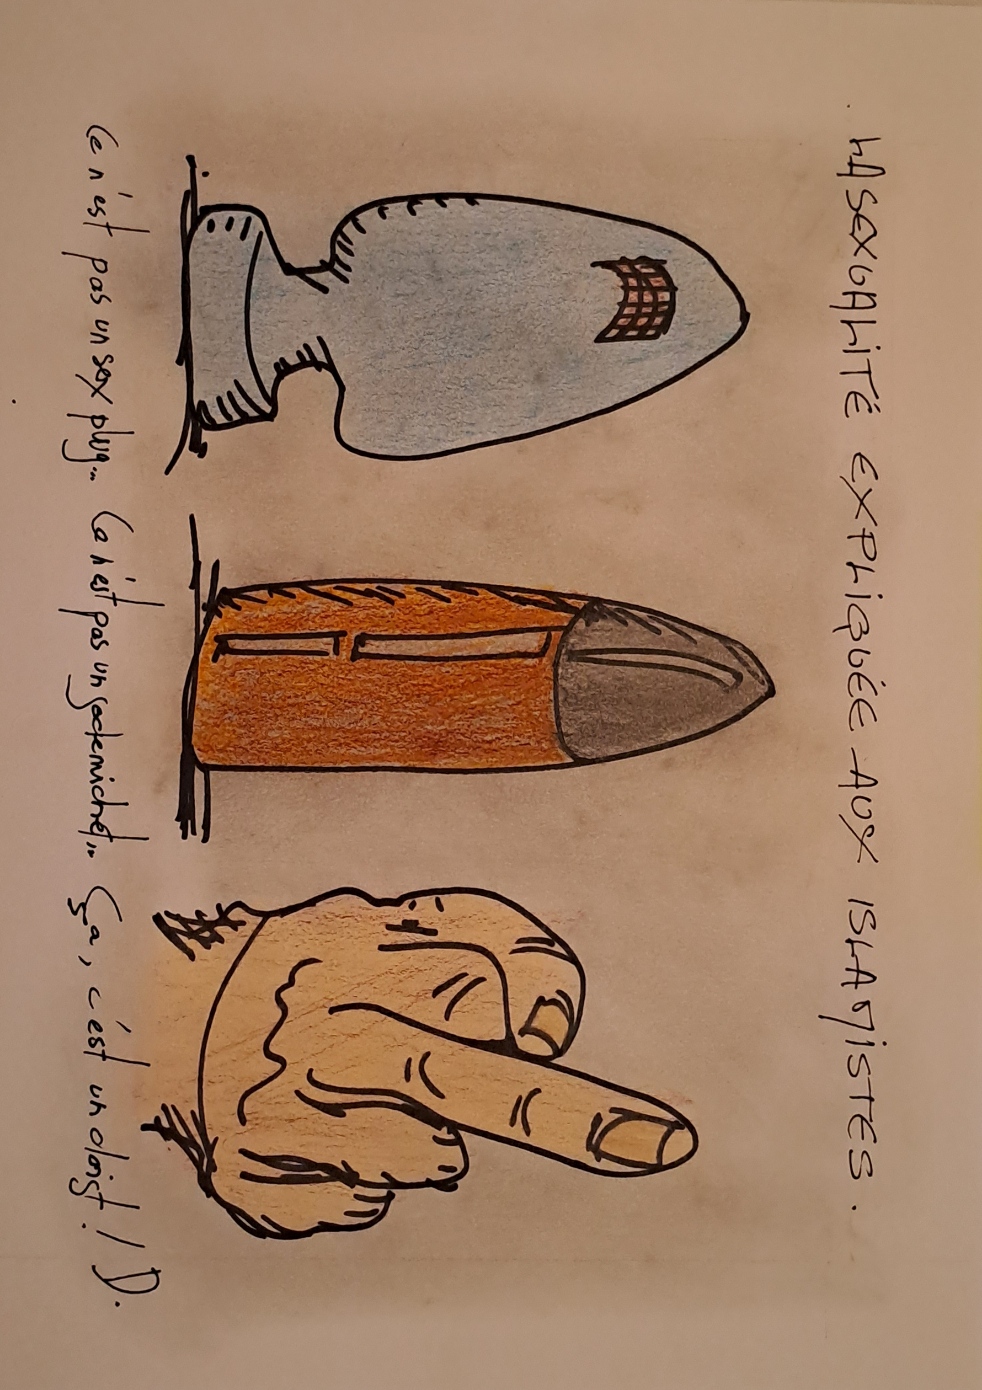 LA SEXUALITÉ EXPLIQUÉE AUX ISLAMISTES.
Ce n'est pas un sex plug... Ca n'est pas un godemichet... Ça, c'est un doigt! D.